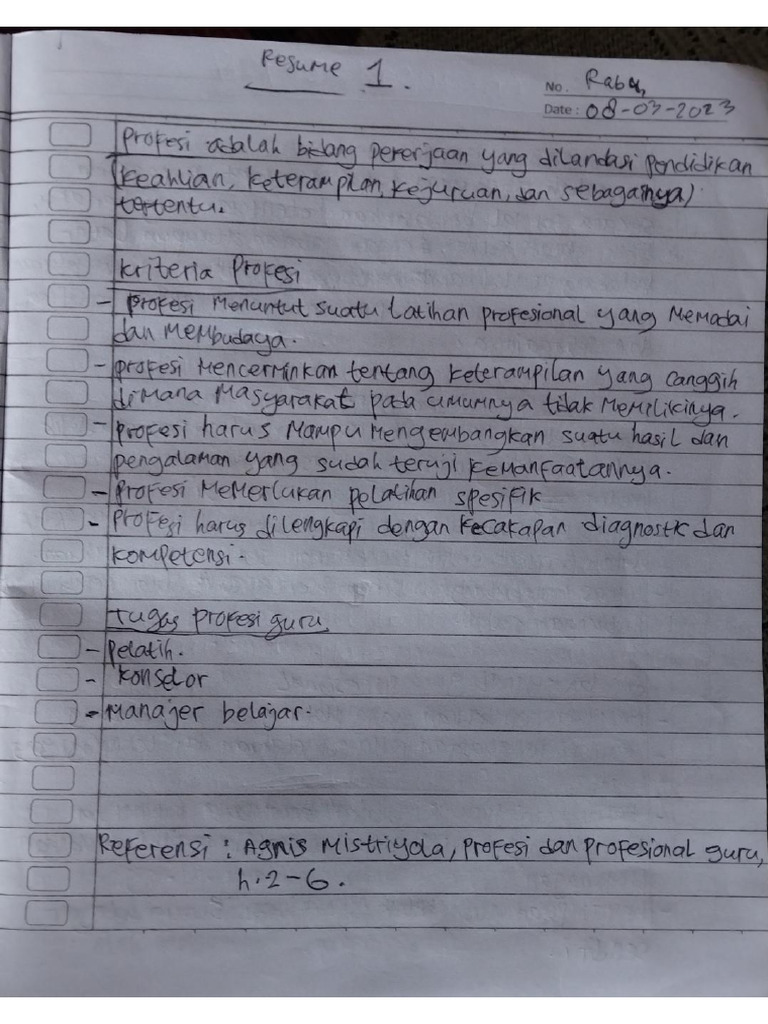 Resume 1.
No. Rabu,
Date: 08-03-2023
Profesi adalah bidang pekerjaan yang dilandasi pendidikan
(keahlian, keterampilan, kejuruan, dan sebagainya)
tertentu.
kriteria Profesi
- profesi menuntut suatu latihan profesional yang memadai
dan membudaya.
- profesi mencerminkan tentang keterampilan yang canggih
dimana masyarakat pada umumnya tidak memilikinya.
- profesi harus mampu mengembangkan suatu hasil dan
pengalaman yang sudah teruji kemanfaatannya.
- profesi memerlukan pelatihan spesifik
- profesi harus dilengkapi dengan kecakapan diagnostk dan
kompetensi.
tugas profesi guru
- pelatih.
- konselor
- manajer belajar.
Referensi : Agnis Mistriyola, profesi dan profesional guru,
h.2-6.